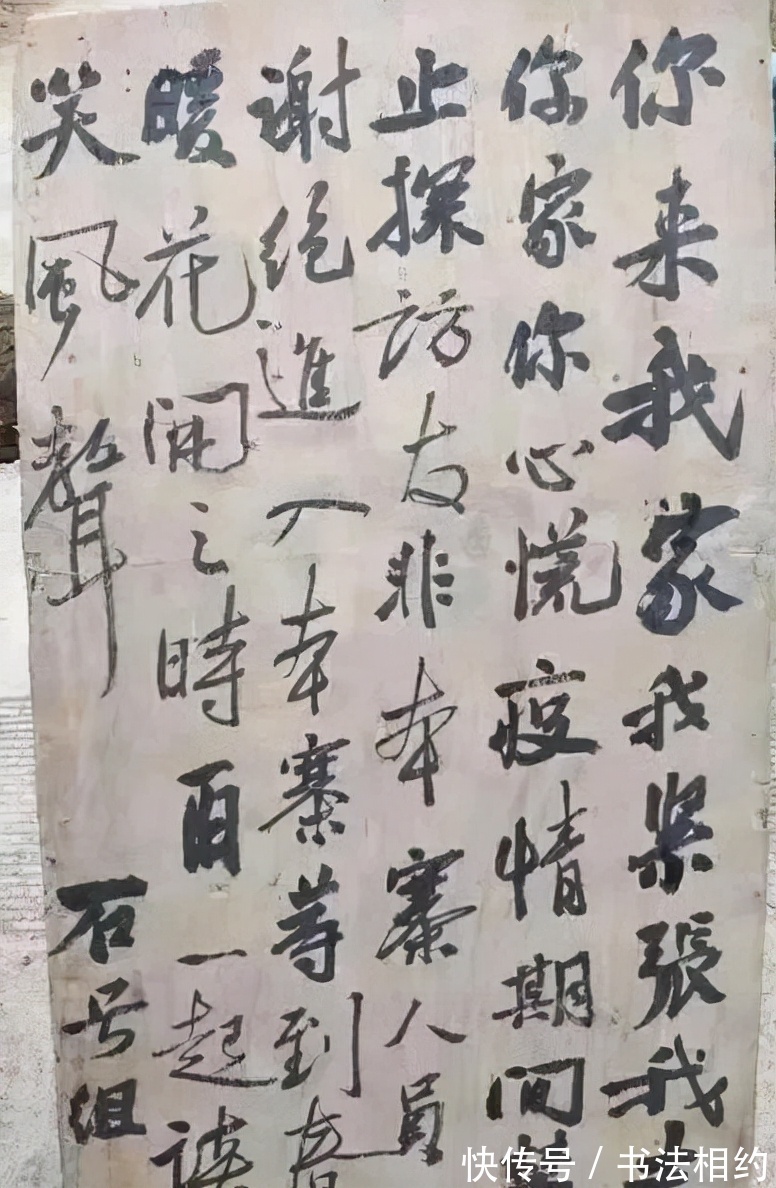 你来我家我紧張我
你家你心慌疫情期间
止探访友非本寨人員
谢绝進入本寨等到春
暖花開之時再一起谈
笑風聲
石号组
快传号 / 书法相约